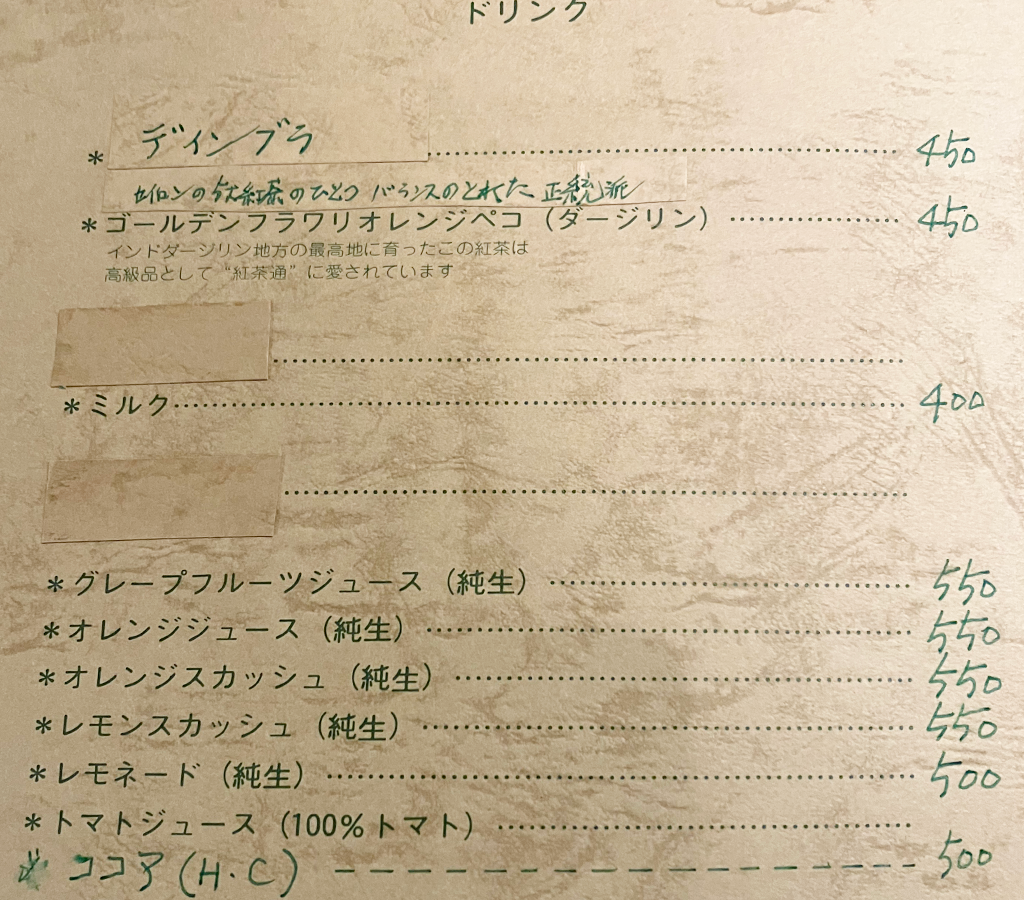 ドリンク
* デインブラ ........ 450
セイロンの伝統紅茶のひとつ バランスのとれた 正統派
* ゴールデンフラワリオレンジペコ（ダージリン） ........ 450
インドダージリン地方の最高地に育ったこの紅茶は
高級品として“紅茶通”に愛されています
* ミルク ........ 400
* グレープフルーツジュース（純生） ........ 550
* オレンジジュース（純生） ........ 550
* オレンジスカッシュ（純生） ........ 550
* レモンスカッシュ（純生） ........ 550
* レモネード（純生） ........ 500
* トマトジュース（100%トマト） ........
* ココア（H・C） ------ 500